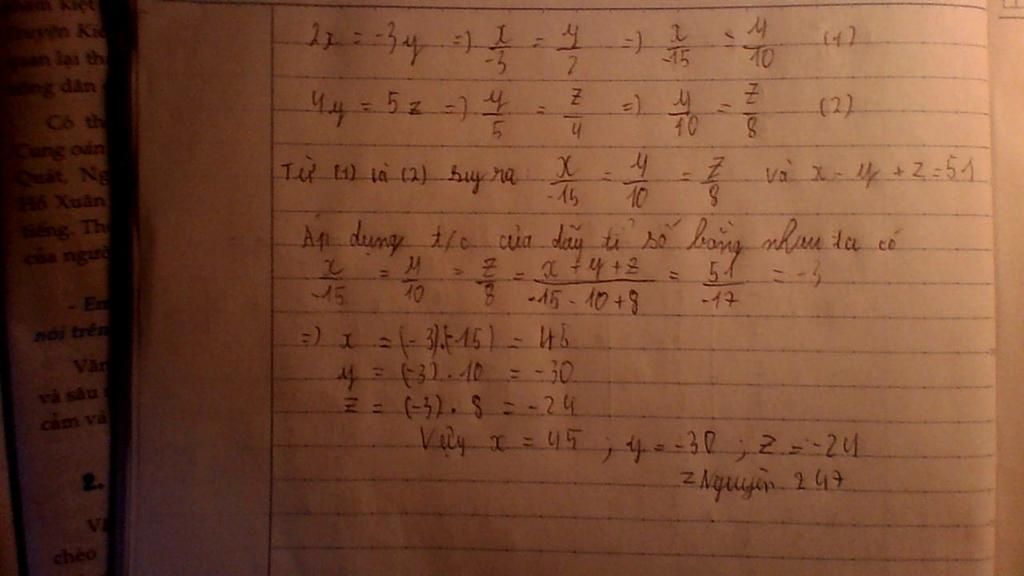 hám Kiệt
truyện Kiề
quan lại th
nông dân
Có th
Cung oán
Quát, Ng
Hồ Xuân
tiếng. Th
của ngườ
- Em
nói trên
Văn
và sâu
cảm và
2.
Vă
chèo
2x = -3y => x/-3 = y/2 => x/-15 = y/10 (1)
4y = 5z => y/5 = z/4 => y/10 = z/8 (2)
Từ (1) và (2) suy ra x/-15 = y/10 = z/8 và x - y + z = 51
Áp dụng t/c của dãy tỉ số bằng nhau ta có
x/-15 = y/10 = z/8 = x + y + z/-15 - 10 + 8 = 51/-17 = -3
=> x = (-3).(-15) = 45
y = (-3) . 10 = -30
z = (-3) . 8 = -24
Vậy x = 45 ; y = -30 ; z = -24
zNguyễn 247